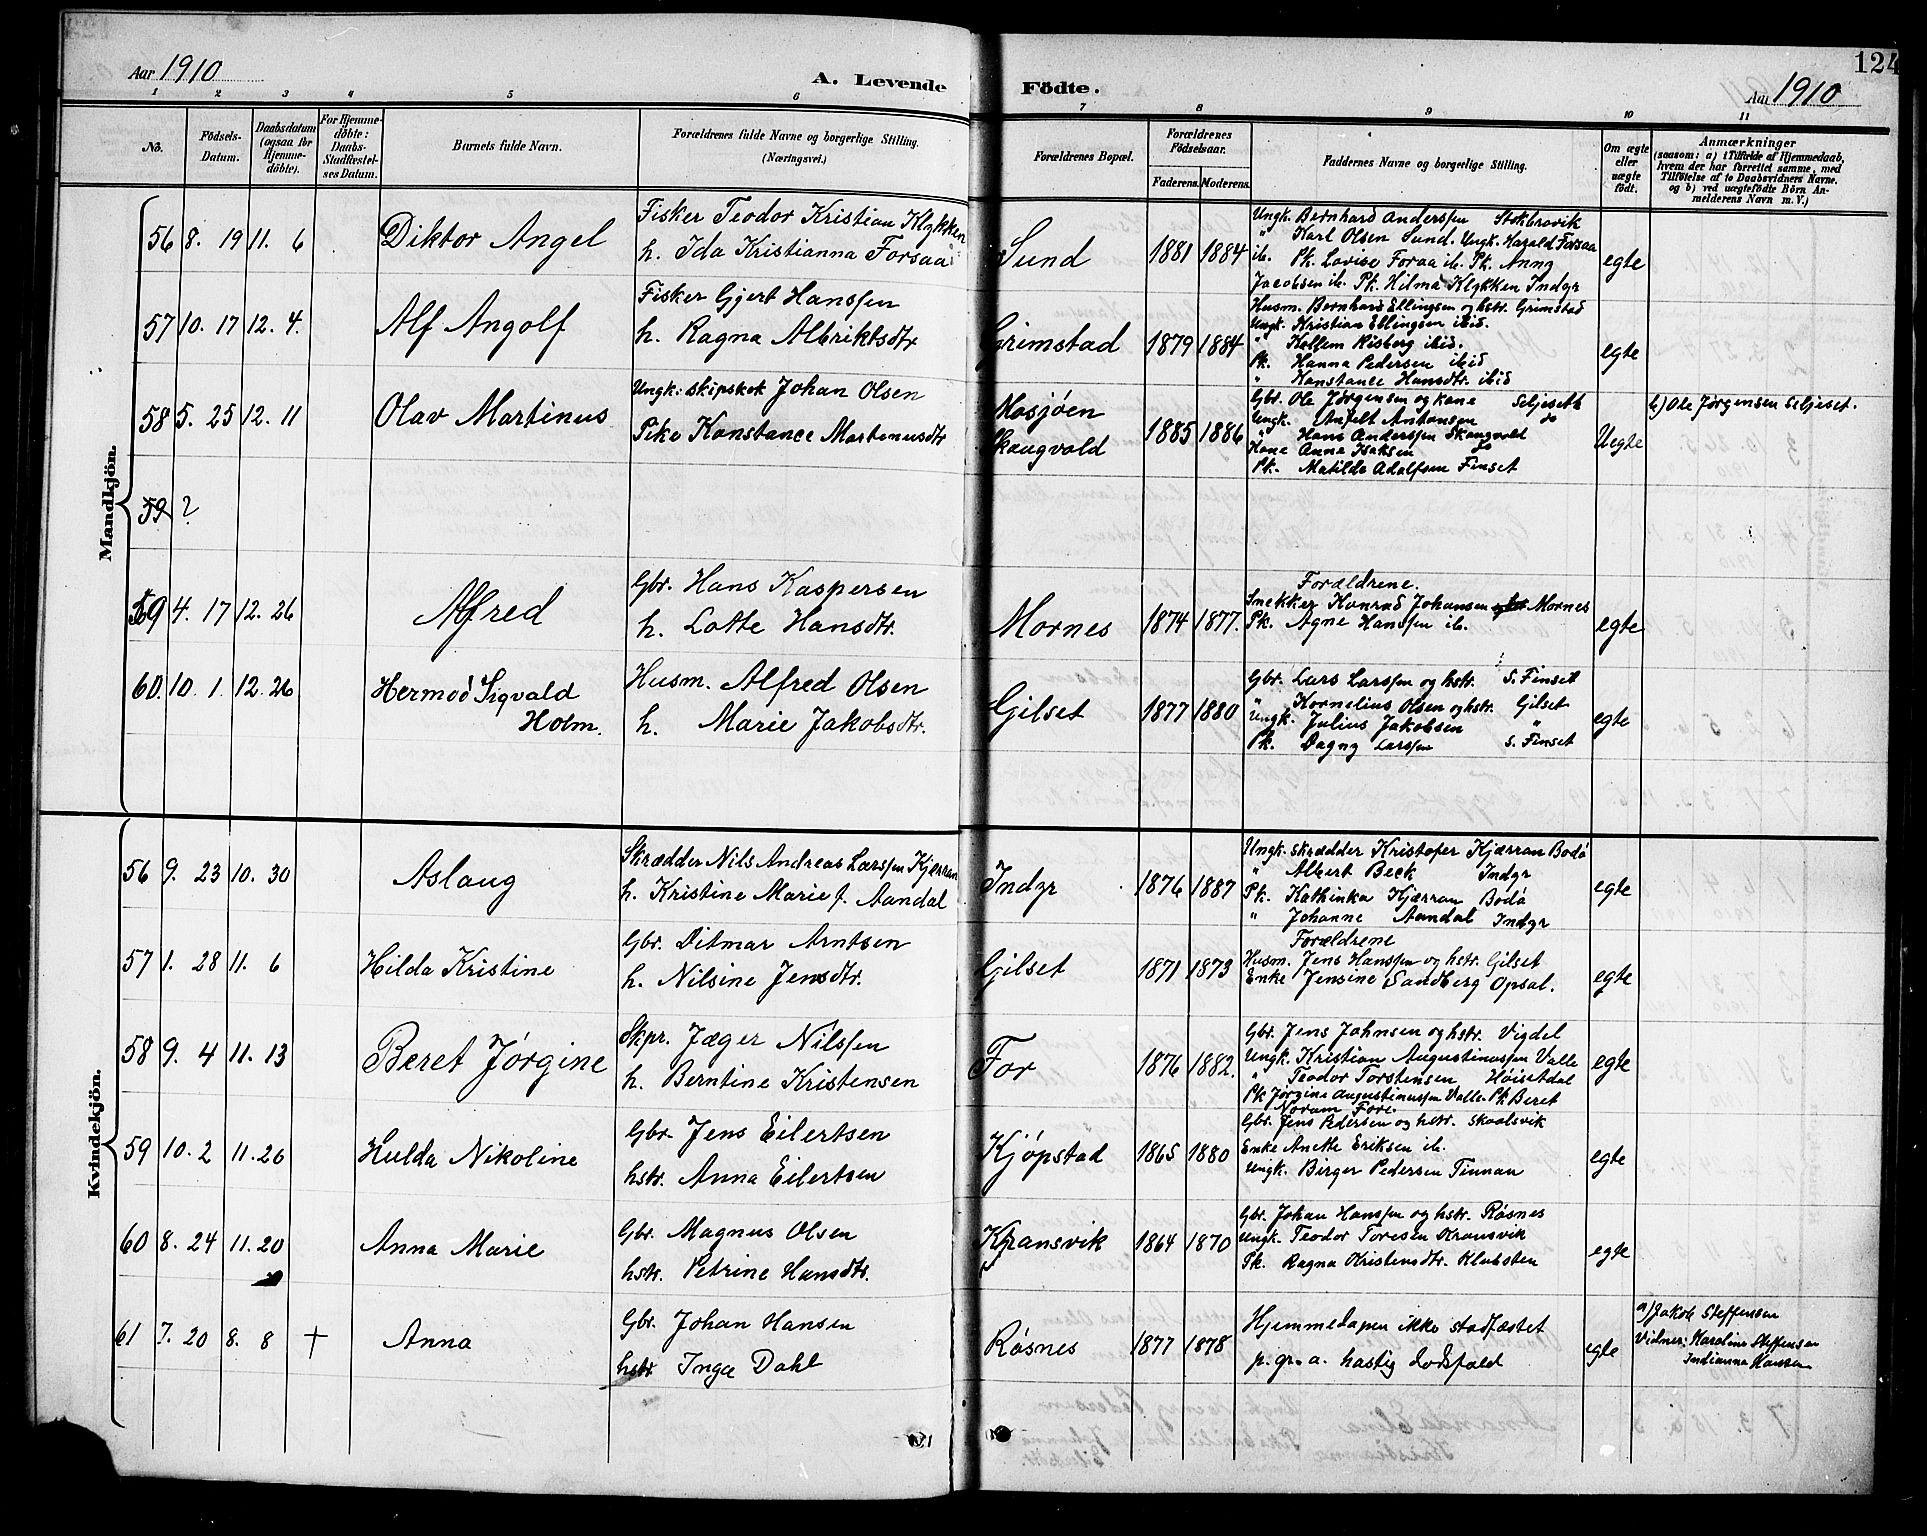 124
Aar 1910
A. Levende
Födte.
Aar 1910
1 2 3 4 5 6 7 8 9 10 11
No.
Födsels-
Datum.
Daabsdatum
(ogsaa for
Hjemme-
döbte).
For Hjemme-
döbte:
Daabs-
Stadfæstel-
ses Datum.
Barnets fulde Navn.
Forældrenes fulde Navne og borgerlige Stilling.
(Næringsvei.)
Forældrenes Bopæl.
Forældrenes
Födselsaar.
Faderens. Moderens.
Faddernes Navne og borgerlige Stilling.
Om ægte
eller
uægte
födt.
Anmærkninger
(saasom: a) i Tilfælde af Hjemmedaab,
hvem der har forrettet samme, med
Tilföielse af to Daabsvidners Navne.
og b) ved uægtefödte Börn An-
melderens Navn m. V.)
Mandkjön.
56 8. 19 11. 6
Diktor Angel
Fisker Teodor Kristian Klykken
h. Ida Kristianna Forsaa
Sund
1881 1884
Ungk. Bernhard Anderssen Stokbrovik
" Karl Olsen Sund. Ungk. Harald Forsaa
ib. Pk. Lovise Foraa ib. Pk. Anny
Jacobsen ib. Pk. Hilma Klykken Indyr
egte
57 10. 17 12. 4.
Alf Angolf
Fisker Gjert Hanssen
h. Ragna Albriktsdtr
Grimstad
1879 1884
Husm. Bernhard Ellingsen og hstr. Grimstad
Ungk. Kristian Ellingsen ibid.
" Kellem Risberg ibid.
Pk. Hanna Pedersen ibid
" Konstance Hansdtr. ibid
egte
58 5. 25 12. 11
Olav Martinus
Ungk: skipskok Johan Olsen
Pike Konstance Martenusdtr
Mosjøen
Skaugvold
1885 1886
Gbr. Ole Jørgensen og kone Seljeseth
Ungk. Anfelt Antonsen do
" Hans Anderssen Skaugvold
Kone Anna Isaksen do
Pk. Matilde Adolfsen Finset
Uegte
b) Ole Jørgensen Seljeset.
59 ?
59 4. 17 12. 26
Alfred
Gbr. Hans Kaspersen
h. Lotte Hansdtr.
Mornes
1874 1877.
Forældrene.
Snekker Konrad Johansen Mornes
Pk. Agne Hanssen ib.
egte
60. 10. 1. 12. 26
Hermod Sigvald
Holm.
Husm. Alfred Olsen
h. Marie Jakobsdtr.
Gilset
1877 1880
Gbr. Lars Larssen og hstr. S. Finset
" Kornelius Olsen og hstr. Gilset
Ungk. Julius Jakobsen "
Pk. Dagny Larssen S. Finset
egte
Kvindekjön.
56 9. 23 10. 30
Aslaug
Skrædder Nils Andreas Larssen Kjærran
h. Kristine Marie f. Aandal
Indyr
1876 1887
Ungk. skrædder Kristofer Kjærran Bodø
" Albert Beck Indyr
Pk. Kathinka Kjærran Bodø
" Johanne Aandal Indyr
egte
57 1. 28 11. 6
Hilda Kristine
Gbr. Ditmar Arntsen
h. Nilsine Jensdtr.
Gilset
1871 1873
Forældrene
Husm. Jens Hanssen og hstr. Gilset
Enke Jensine Sandberg Opsal.
egte
58 9. 4 11. 13
Beret Jørgine
Skpr. Jæger Nilssen
h. Berntine Kristensen
For
1876 1882.
Gbr. Jens Johnsen og hstr. Vigdel
Ungk. Kristian Augustinussen Valle
" Teodor Torstensen Höisetdal
Pk Jørgine Augustinussen Valle Pk Beret
Noram Fore.
egte
59 10. 2 11. 20
Hulda Nikoline
Gbr. Jens Eilertsen
hstr. Anna Eilertsen
Kjøpstad
1865 1880
Gbr. Jens Pedersen og hstr. Skaalsvik
Enke Anette Eriksen ib.
Ungk. Birger Pedersen Tinnan
egte
60 8. 24 11. 20
Anna Marie
Gbr. Magnus Olsen
hstr. Petrine Hansdtr.
Kransvik
1864 1870
Gbr. Johan Hanssen og hstr. Røsnes
Ungk. Teodor Toresen Kransvik
Pk. Ragna Kristensdtr. Klubsten
egte
61 7. 20 8. 8 +
Anna
Gbr. Johan Hansen
hstr Inga Dahl
Røsnes
1877 1878
Hjemmedapen ikke stadfæstet
p. gr. a. hastig dødsfald
egte
a) Jakob Steffensen
Vidner: Karoline Steffensen
Indianna Hansen